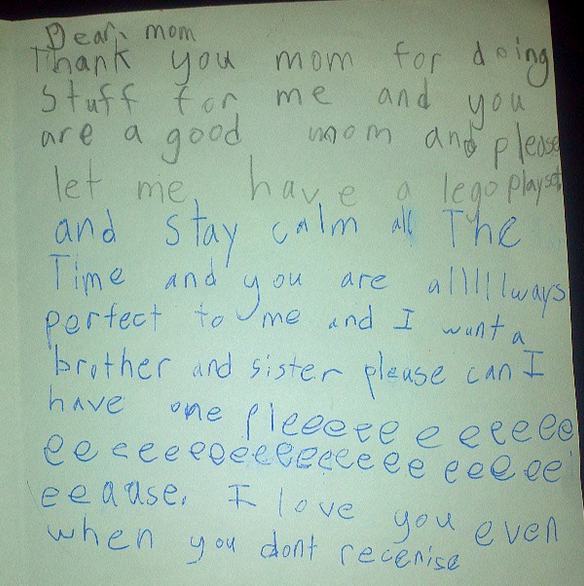 Dear mom
Thank you mom for doing
Stuff for me and you
are a good mom and please
let me have a lego playset
and stay calm all The
Time and you are allllllways
perfect to me and I want a
brother and sister please can I
have one Pleeeeee e eeeeee
ee eeeeeeeeeeeeeeee eeeeee
eeause. I love you even
when you dont recenise